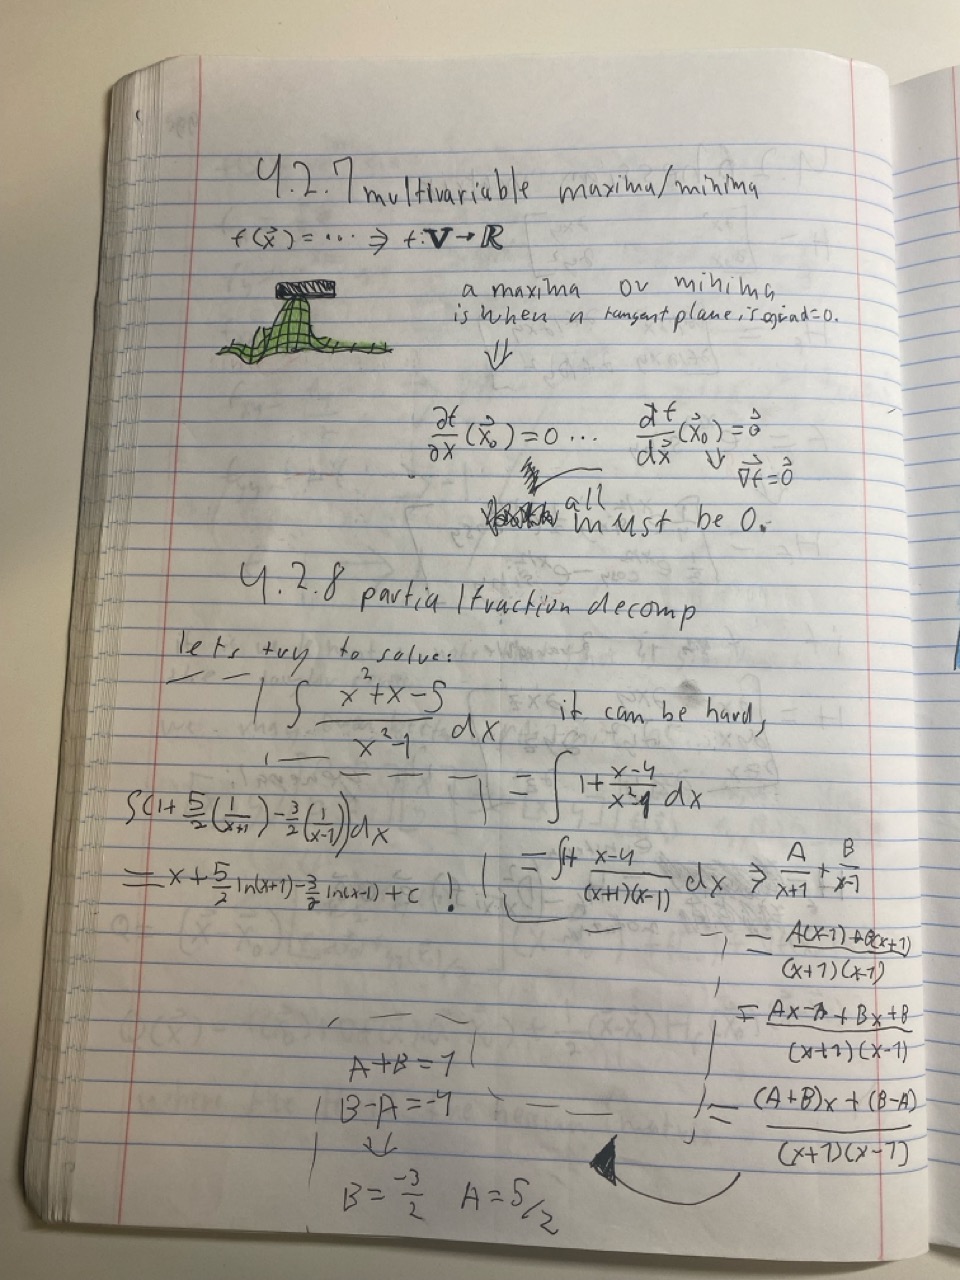 4.2.7 multivariable maxima/minima
f(x⃗) = ... ⇒ f: V → R
a maxima or minima
is when a tangent plane's grad=0.
⇓
∂f/∂x (x⃗₀) = 0 ... df/dx⃗ (x⃗₀) = 0⃗
↓ ∇⃗f = 0⃗
all
must be 0.
4.2.8 partial fraction decomp
let's try to solve:
∫ (x²+x-5)/(x²-1) dx it can be hard,
= ∫ 1 + (x-4)/(x²-1) dx
= ∫ 1 + (x-4)/((x+1)(x-1)) dx ⇒ A/(x+1) + B/(x-1)
= (A(x-1)+B(x+1))/((x+1)(x-1))
= (Ax-A+Bx+B)/((x+1)(x-1))
= ((A+B)x+(B-A))/((x+1)(x-1))
A+B=1
B-A=-4
⇓
B = -3/2 A = 5/2
∫(1 + 5/2 (1/(x+1)) - 3/2 (1/(x-1))) dx
= x + 5/2 ln(x+1) - 3/2 ln(x-1) + c !